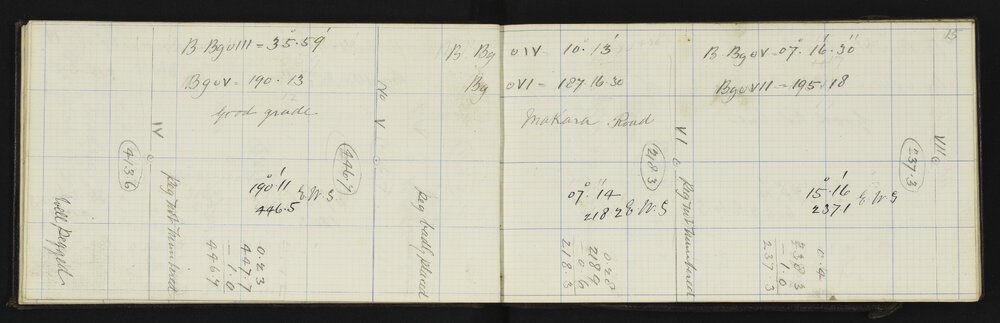 B Bg o III = 35°.59'
Bg o V = 190.13
good grade
IV
413.6
Well pegged
Peg not numbered
446.7
190°.11'
446.5
E.W.S
0.23
447.7
- 1.0
446.7
No V
Peg badly placed
B Bg o IV - 10°.13'
Bg o VI = 187.16.30
Makara Road
218.3
VI
Peg not numbered
07°.14'
218 2 E.W.S
0.28
218 9
0.6
218.3
15
B. Bg o V = 07°.16'.30"
Bg o VII = 195.18
VII
237.3
15°.16'
2371
E W S
0.4
238 3
- 1.0
237.3